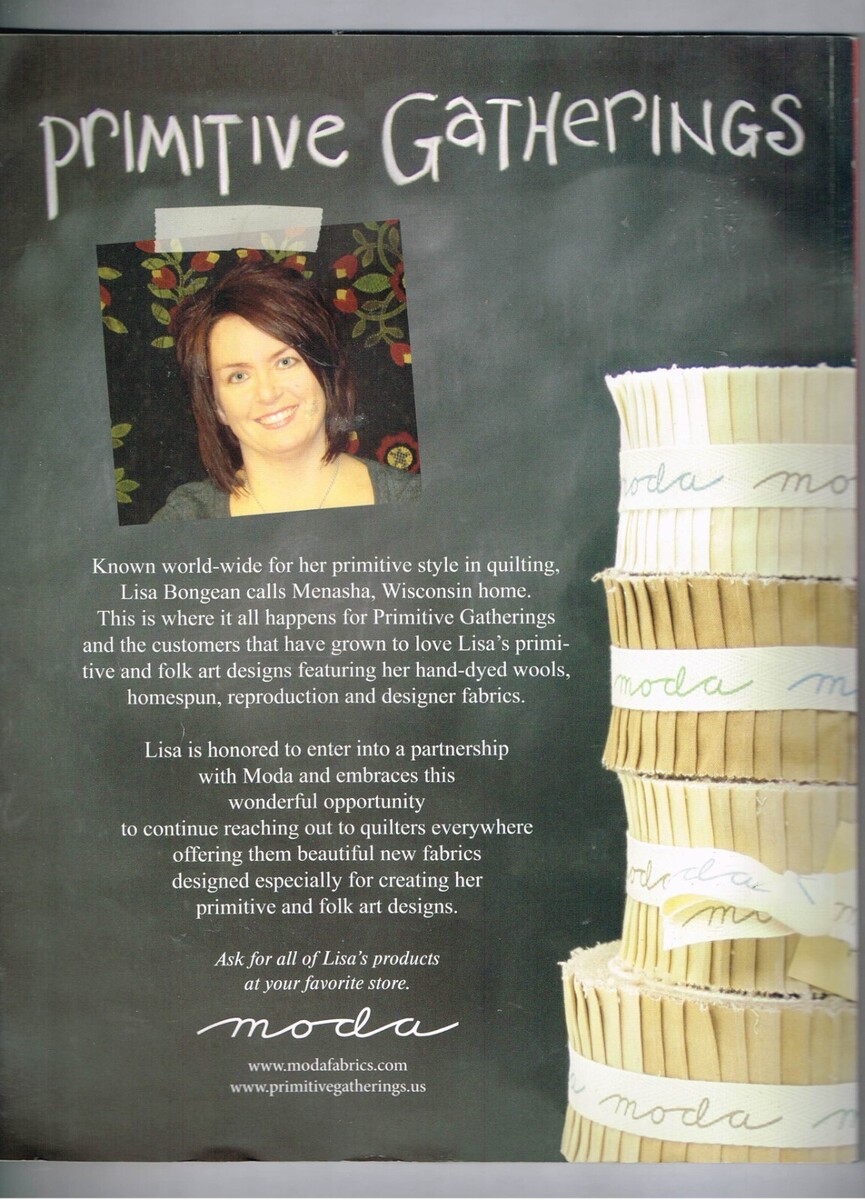 PRIMITIVE GATHERINGS
Known world-wide for her primitive style in quilting,
Lisa Bongean calls Menasha, Wisconsin home.
This is where it all happens for Primitive Gatherings
and the customers that have grown to love Lisa's primi-
tive and folk art designs featuring her hand-dyed wools,
homespun, reproduction and designer fabrics.
Lisa is honored to enter into a partnership
with Moda and embraces this
wonderful opportunity
to continue reaching out to quilters everywhere
offering them beautiful new fabrics
designed especially for creating her
primitive and folk art designs.
Ask for all of Lisa's products
at your favorite store.
moda
www.modafabrics.com
www.primitivegatherings.us
moda mo
moda m
moda
moda